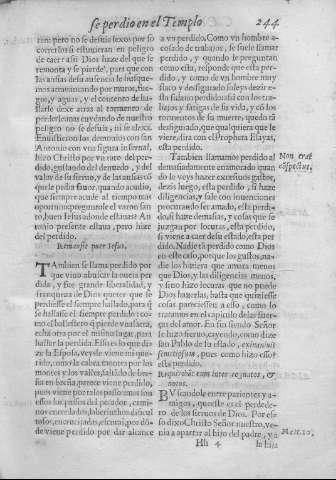 se perdio en el Templo. 244
ran: pero no se desuie lexos por so
correrlos si estuuieran en peligro
de caer: assi Dios haze del que se
remonta y se pierde, pues que con
las ansias desta ausencia le busque-
mos atrauiessando por muros, fue-
gos, y aguas, y el contento de ha-
llarle dexe atras al tormento de
perder
peligro no se desuie, ni se alexe.
san Antonio con los demonios
Antonio con vna figura infernal,
hizo Christo por vn rato del per-
dido, gustando del denuedo, y del
valor de su sieruo, y de las ansias có
que le pedia fauor, quando acudio,
que siempre acude al tiempo mas
oportuno, preguntole el varon san-
to, buen Iesus adonde estauas? An-
tonio presente estaua, pero hize
del perdido.
Remansit puer Iesus.
TAmbien se llama perdido por
que vino a buscar la oueja per
dida, y fue grande liberalidad, y
franqueza de Dios querer que se
perdiesse el siempre hallado, para q̃
se hallasse el siempre perdido: co-
mo el ballestero q̃ pierde vna saeta,
echa otra por el mismo lugar, para
hallar la perdida. Esso es lo que di-
ze la Esposa, veysle viene mi que-
rido, como la cabra montes por los
montes y los valles, saltido de bre-
ña en breña, parece viene perdido,
pues viene por tales passos: mas los
passos son del pecador, cami-
nos errados, laberintos dificul
tosos, encerrados, escuros, por dó-
de viene perdido por dar alcance
a vn perdido. Como vn hombre a-
cosado de trabajos, se suele llamar
perdido, y quando le preguntan
como esta, responde que esta per-
dido, y como de vn hombre muy
flaco y desfigurado soleys dezir e-
sta fulano perdido: assi con los tra-
bajos y fatigas de su vida, y có los
tormentos de su muerte, quedo tá
desfigurado, que qualquiera que le
viera, dira con el Propheta Esayas,
esta perdido.
Tambien llamamos perdido al
demasiadamente enamorado quan
do le veys hazer excessiuos gastos,
dezis luego, esta perdido, si haze
diligencias, y sale con inuenciones
procurando ser amado, esta perdi-
do, si haze demasias, y cosas que se
juzgan por locuras, esta perdido,
si viene a caer de su estado, esta per
dido. Nadie tá perdido como Dios
en este caso, porque los gastos, na-
die los hiziera que amara menos
que Dios, y las diligencias menos,
y sino hizo locuras que no puede
Dios hazerlas, basta que quisiesse
cosas parecientes a esso, como lo
tratamos en el capitulo de las fuer-
ças del amor. En fin siendo Señor
se hizo sieruo, cayendo, como dize
san Pablo de su estado, exinaniuit
semetipsum, pues como hizo esso?
esta perdido.
Requirebant eum inter cognatos, &
notos.
BVscandole entre parientes y a-
migos, que este es el perdede-
ro de los sieruos de Dios. Por es-
so dixo Christo Señor nuestro, ve-
nia a apartar al hijo del padre, y a
Hh 4 la hija
Non erat
aspectus.
Matt. 10.